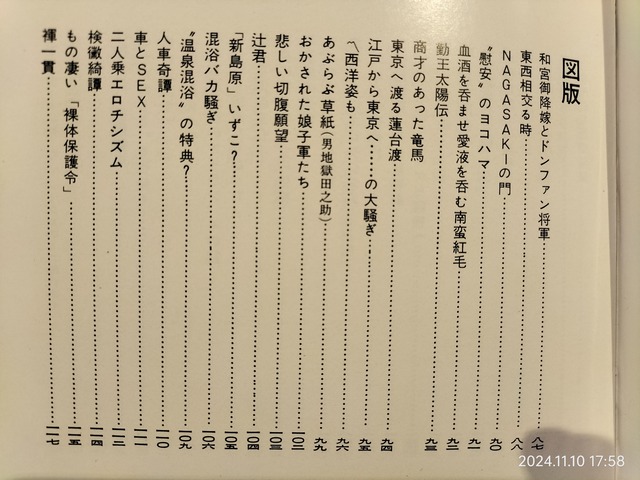 図版
和宮御降嫁とドンファン将軍……八七
東西相交る時……八八
NAGASAKIの門……九〇
〝慰安〟のヨコハマ……九一
血酒を呑ませ愛液を呑む南蛮紅毛……九二
勤王太陽伝……九三
商才のあった竜馬
東京へ渡る蓮台渡……九四
江戸から東京へ……の大騒ぎ……九五
〽西洋姿も……九六
あぶらぶ草紙(男地獄田之助)……九九
おかされた娘子軍たち……一〇二
悲しい切腹願望……一〇三
辻君……一〇四
「新島原」いずこ?……一〇五
混浴バカ騒ぎ……一〇六
〝温泉混浴〟の特典?……一〇九
人車奇譚……一一〇
車とSEX……一一一
二人乗エロチシズム……一一二
検黴綺譚……一一四
もの凄い「裸体保護令」……一一五
褌一貫……一一七
2024.11.10 17:58